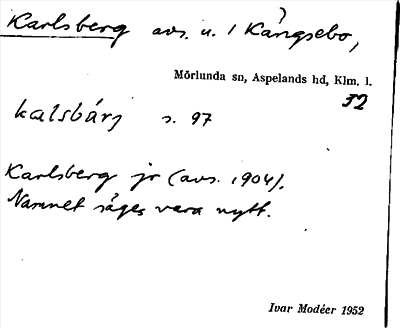 Karlsberg avs. u. 1 Kängsebo,
Mörlunda sn, Aspelands hd, Klm. l.
32
kalsbárj s. 97
Karlsberg jr (avs. 1904).
Namnet säges vara nytt.
Ivar Modéer 1952